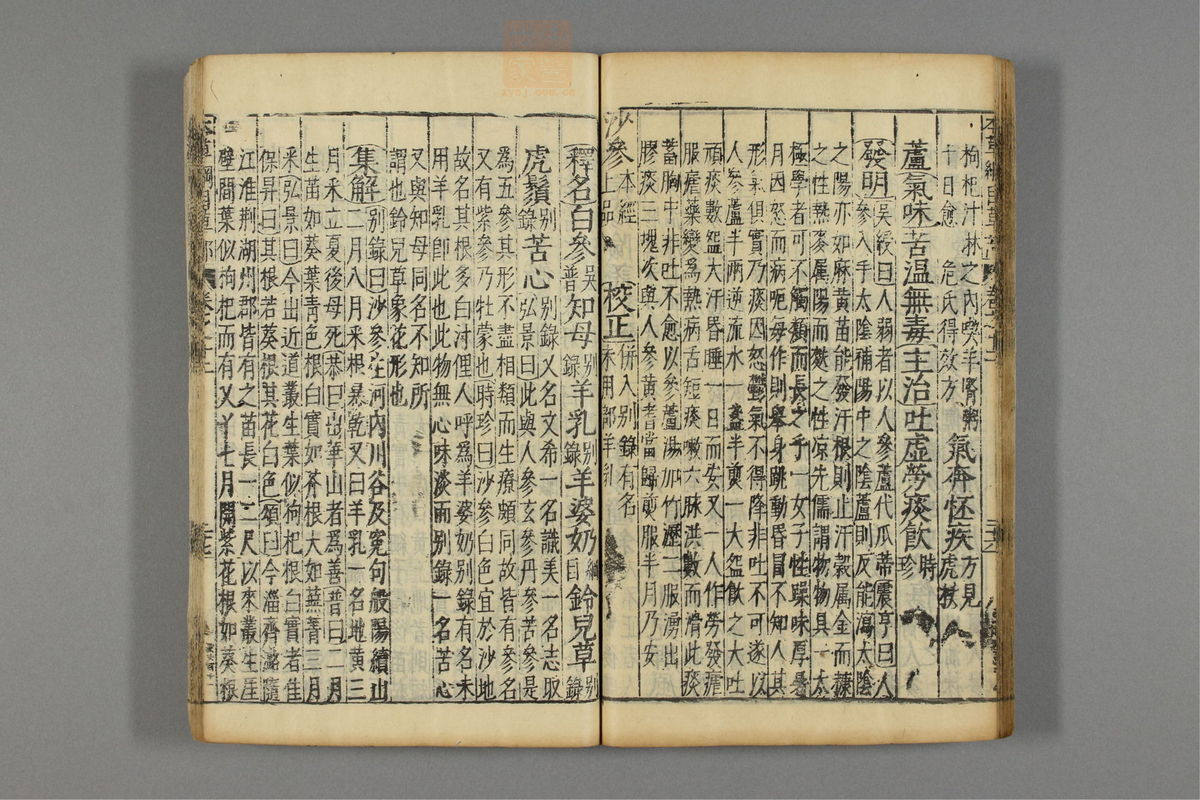 枸杞汁淋之內喫羊腎粥
十日愈 危氏得效方 氣奔怪疾方見虎杖
蘆氣味苦溫無毒主治吐虛勞痰飲時珍
發明吳綬曰人弱者以人參蘆代瓜蒂震亨曰人
參入手太陰補陽中之陰蘆則反能瀉太陰
之陽亦如麻黃苗能發汗根則止汗穀属金而糠
之性熱麥属陽而麩之性凉先儒謂物物具一太
極學者可不觸類而長之乎一女子性躁味厚暑
月因怒而病呃每作則舉身跳動昏冒不知人其
形氣俱實乃痰因怒鬱氣不得降非吐不可遂以
人參蘆半兩逆流水一盞半煎一大盌飲之大吐
頑痰數盌大汗昏睡一日而安又一人作勞發瘧
服瘧藥變爲熱病舌短痰嗽六脉洪數而滑此痰
蓄胸中非吐不愈以參蘆湯加竹瀝二服湧出
膠痰三塊次與人參黃耆當歸煎服半月乃安
沙參本經上品 校正併入别錄有名未用部羊乳
釋名白參吳普知母别錄羊乳别錄羊婆奶綱目鈴兒草别錄
虎鬚别錄苦心别錄又名文希一名識美一名志取弘景曰此與人參玄參丹參苦參是
為五參其形不盡相類而生療頗同故皆有參名
又有紫參乃牡蒙也時珍曰沙參白色宜於沙地
故名其根多白汁俚人呼為羊婆奶别錄有名未
用羊乳即此也此物無心味淡而别錄一名苦心
又與知母同名不知所
謂也鈴兒草象花形也
集解别錄曰沙參生河內川谷及冤句般陽續山
二月八月采根暴乾又曰羊乳一名地黃三
月采立夏後母死恭曰出華山者為善普曰二月
生苗如葵葉青色根白實如芥根大如蕪菁三月
采弘景曰今出近道叢生葉似枸杞根白實者佳
保昇曰其根若葵根其花白色頌曰今淄齊潞隨
江淮荆湖州郡皆有之苗長一二尺以來叢生崖
壁間葉似枸杞而有叉丫七月開紫花根如葵根
本草綱目草部 卷之十二